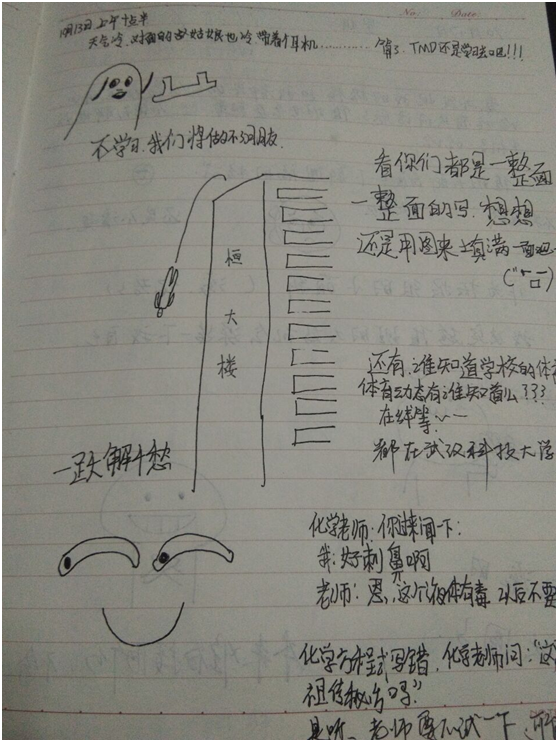 No. Date.
10月13日 上午十点半
天气冷,对面的女姑娘也冷,带着耳机………… 算了,TMD还是学习吧!!!
不学习,我们将做不了朋友.
看你们都是一整面
一整面的写,想想
还是用图来填满一面吧
恒大楼
还有,谁知道学校的体
体育动态有谁知道么???
在线等~~
都在武汉科技大学
一跃解千愁
化学老师:你过来闻一下:
我:好刺鼻啊
老师:恩,这个液体有毒 以后不要
化学方程式写错,化学老师问:"这
祖传秘方吗?"
是呀,老师要不试一下,